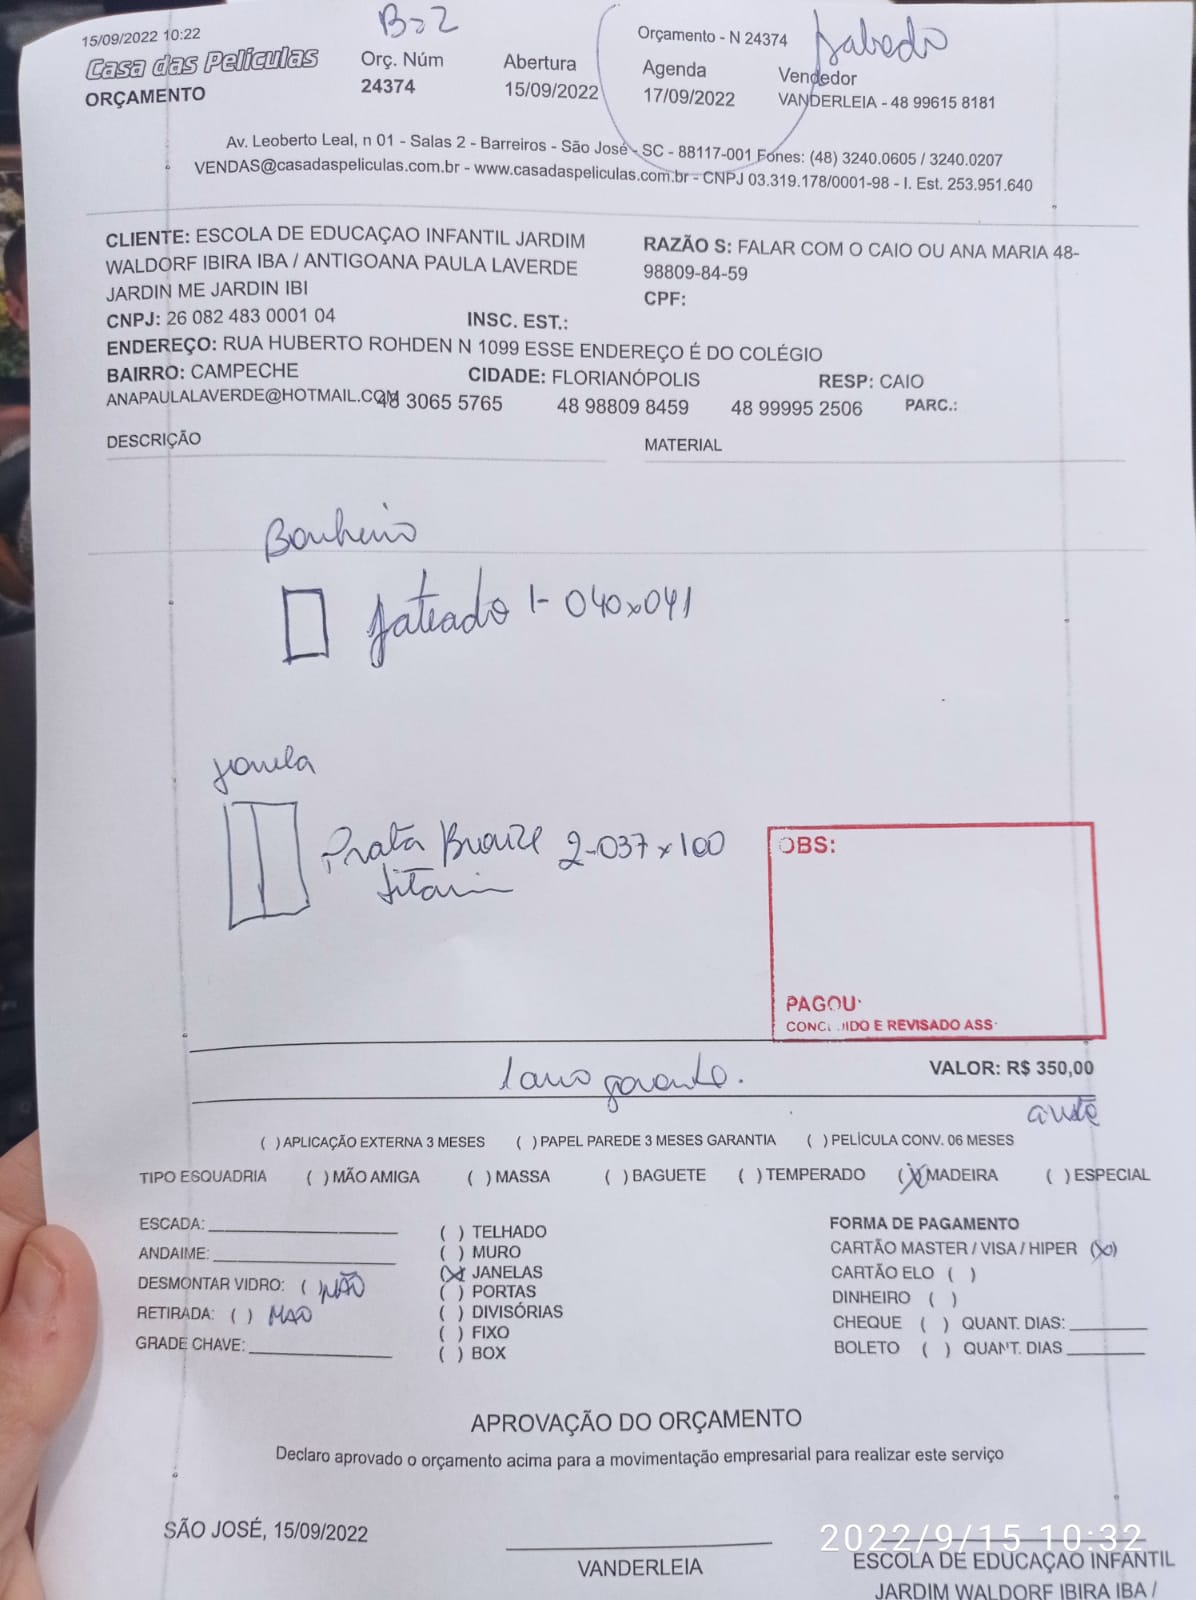 15/09/2022 10:22
B-2
Orçamento - N 24374
Sabado
Casa das Películas
ORÇAMENTO
Orç. Núm
24374
Abertura
15/09/2022
Agenda
17/09/2022
Vendedor
VANDERLEIA - 48 99615 8181
Av. Leoberto Leal, n 01 - Salas 2 - Barreiros - São José - SC - 88117-001 Fones: (48) 3240.0605 / 3240.0207
VENDAS@casadaspeliculas.com.br - www.casadaspeliculas.com.br - CNPJ 03.319.178/0001-98 - I. Est. 253.951.640
CLIENTE: ESCOLA DE EDUCAÇAO INFANTIL JARDIM
WALDORF IBIRA IBA / ANTIGOANA PAULA LAVERDE
JARDIN ME JARDIN IBI
RAZÃO S: FALAR COM O CAIO OU ANA MARIA 48-
98809-84-59
CPF:
CNPJ: 26 082 483 0001 04 INSC. EST.:
ENDEREÇO: RUA HUBERTO ROHDEN N 1099 ESSE ENDEREÇO É DO COLÉGIO
BAIRRO: CAMPECHE CIDADE: FLORIANÓPOLIS RESP: CAIO
ANAPAULALAVERDE@HOTMAIL.COM 48 3065 5765 48 98809 8459 48 99995 2506 PARC.:
DESCRIÇÃO MATERIAL
Banheiro
Jateado 1- 040x041
janela
Prata Bronze 2-037x100
OBS:
PAGOU:
CONCLUIDO E REVISADO ASS:
1 ano garante.
VALOR: R$ 350,00
( ) APLICAÇÃO EXTERNA 3 MESES ( ) PAPEL PAREDE 3 MESES GARANTIA ( ) PELÍCULA CONV. 06 MESES
TIPO ESQUADRIA ( ) MÃO AMIGA ( ) MASSA ( ) BAGUETE ( ) TEMPERADO (X) MADEIRA ( ) ESPECIAL
ESCADA:
ANDAIME:
DESMONTAR VIDRO: ( ) NÃO
RETIRADA: ( ) NAO
GRADE CHAVE:
( ) TELHADO
( ) MURO
(X) JANELAS
( ) PORTAS
( ) DIVISÓRIAS
( ) FIXO
( ) BOX
FORMA DE PAGAMENTO
CARTÃO MASTER / VISA / HIPER (X)
CARTÃO ELO ( )
DINHEIRO ( )
CHEQUE ( ) QUANT. DIAS:
BOLETO ( ) QUANT. DIAS
APROVAÇÃO DO ORÇAMENTO
Declaro aprovado o orçamento acima para a movimentação empresarial para realizar este serviço
SÃO JOSÉ, 15/09/2022
VANDERLEIA
2022/9/15 10:32
ESCOLA DE EDUCAÇAO INFANTIL
JARDIM WALDORF IBIRA IBA /